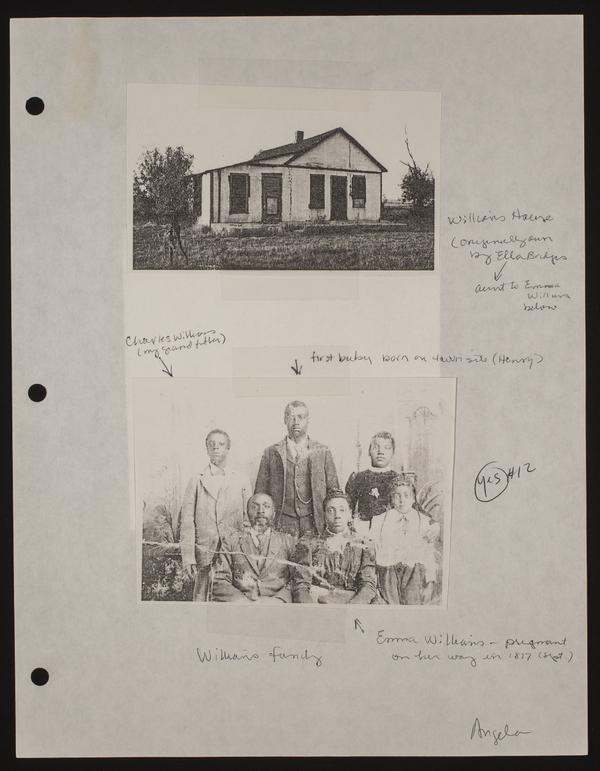 Williams House
(originally own
by Ella Bridges
aunt to Emma
Williams
below
Charles Williams
(my grandfather)
first baby born on townsite (Henry)
yes #12
Emma Williams - pregnant
on her way in 1877 (Sept)
Williams family
Angela